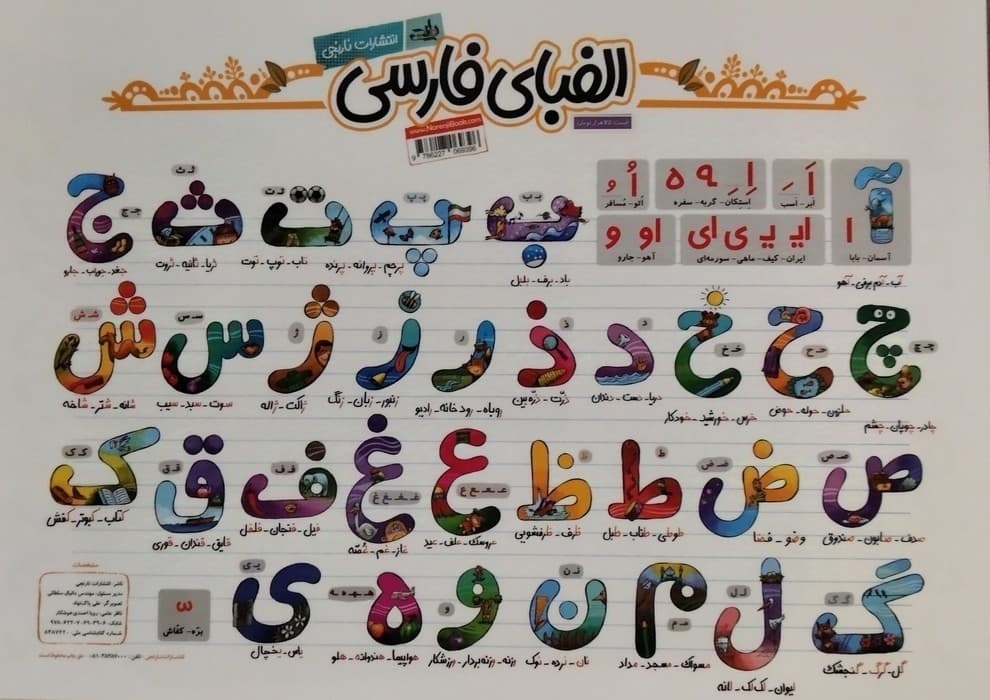 انتشارات نارنجی
الفبای فارسی
www.NarenjiBook.com
9 786227 069396
آ ا
آسمان - بابا
آب - آدم برفی - آهو
اَ ـَ
اَبر - اَسب
اِ ـِ ه ـه
اِستکان - گربه - سفره
اُ ـُ
اُتو - مُسافر
ایـ یـ ی ای
ایران - کیف - ماهی - سورمه‌ای
او و
آهو - جارو
بـ ب
باد - برف - بلبل
پـ پ
پرچم - پروانه - پرنده
تـ ت
تاب - توپ - توت
ثـ ث
ثریا - ثانیه - ثروت
جـ ج
جغد - جوراب - جارو
چـ چ
چادر - چوپان - چشم
حـ ح
حلزون - حوله - حوض
خـ خ
خرس - خورشید - خودکار
د
دریا - دست - دندان
ذ
ذرّت - ذرّه‌بین
ر
روباه - رودخانه - رادیو
ز
زنبور - زبان - زنگ
ژ
ژاکت - ژاله
سـ س
سوت - سبد - سیب
شـ ش
شانه - شتر - شاخه
صـ ص
صدف - صابون - صندوق
ضـ ض
وضو - فضا
ط
طوطی - طناب - طبل
ظ
ظرف - ظرفشویی
عـ ـعـ ـع ع
عروسک - علف - عید
غـ ـغـ ـغ غ
غاز - غم - غصّه
فـ ف
فیل - فنجان - فلفل
قـ ق
قایق - قندان - قوری
کـ ک
کتاب - کبوتر - کفش
گـ گ
گل - گرگ - گنجشک
لـ ل
لیوان - لک لک - لانه
مـ م
مسواک - مسجد - مداد
نـ ن
نان - نرده - نوک
و
وزنه - وزنه‌بردار - ورزشکار
هـ ـهـ ـه ه
هواپیما - هندوانه - هلو
یـ ی
یاس - یخچال
ّ
برّه - کفّاش
مشخصات
ناشر: انتشارات نارنجی